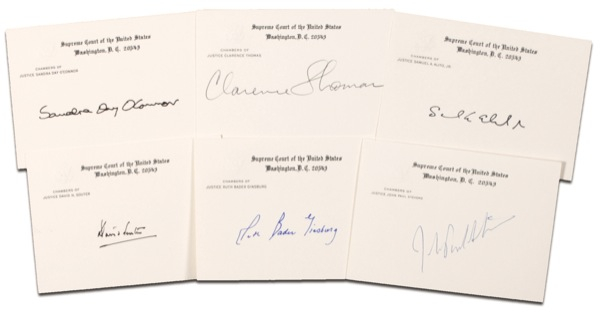 Supreme Court of the United States
Washington, D. C. 20543
CHAMBERS OF
JUSTICE SANDRA DAY O'CONNOR
Sandra Day O'Connor
Supreme Court of the United States
Washington, D. C. 20543
CHAMBERS OF
JUSTICE CLARENCE THOMAS
Clarence Thomas
Supreme Court of the United States
Washington, D. C. 20543
CHAMBERS OF
JUSTICE SAMUEL A. ALITO, JR.
Supreme Court of the United States
Washington, D. C. 20543
CHAMBERS OF
JUSTICE DAVID H. SOUTER
Supreme Court of the United States
Washington, D. C. 20543
CHAMBERS OF
JUSTICE RUTH BADER GINSBURG
Ruth Bader Ginsburg
Supreme Court of the United States
Washington, D. C. 20543
CHAMBERS OF
JUSTICE JOHN PAUL STEVENS